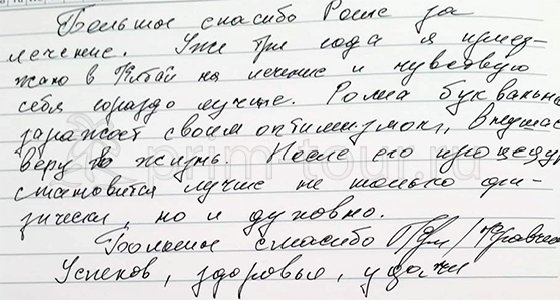 Большое спасибо Роме за
лечение. Уже три года я приез-
жаю в Китай на лечение и чувствую
себя гораздо лучше. Рома буквально
заражает своим оптимизмом, внушает
веру в жизнь. После его процедур
становится лучше не только фи-
зически, но и духовно.
Большое спасибо
Успехов, здоровья, удачи
prim-tour.ru